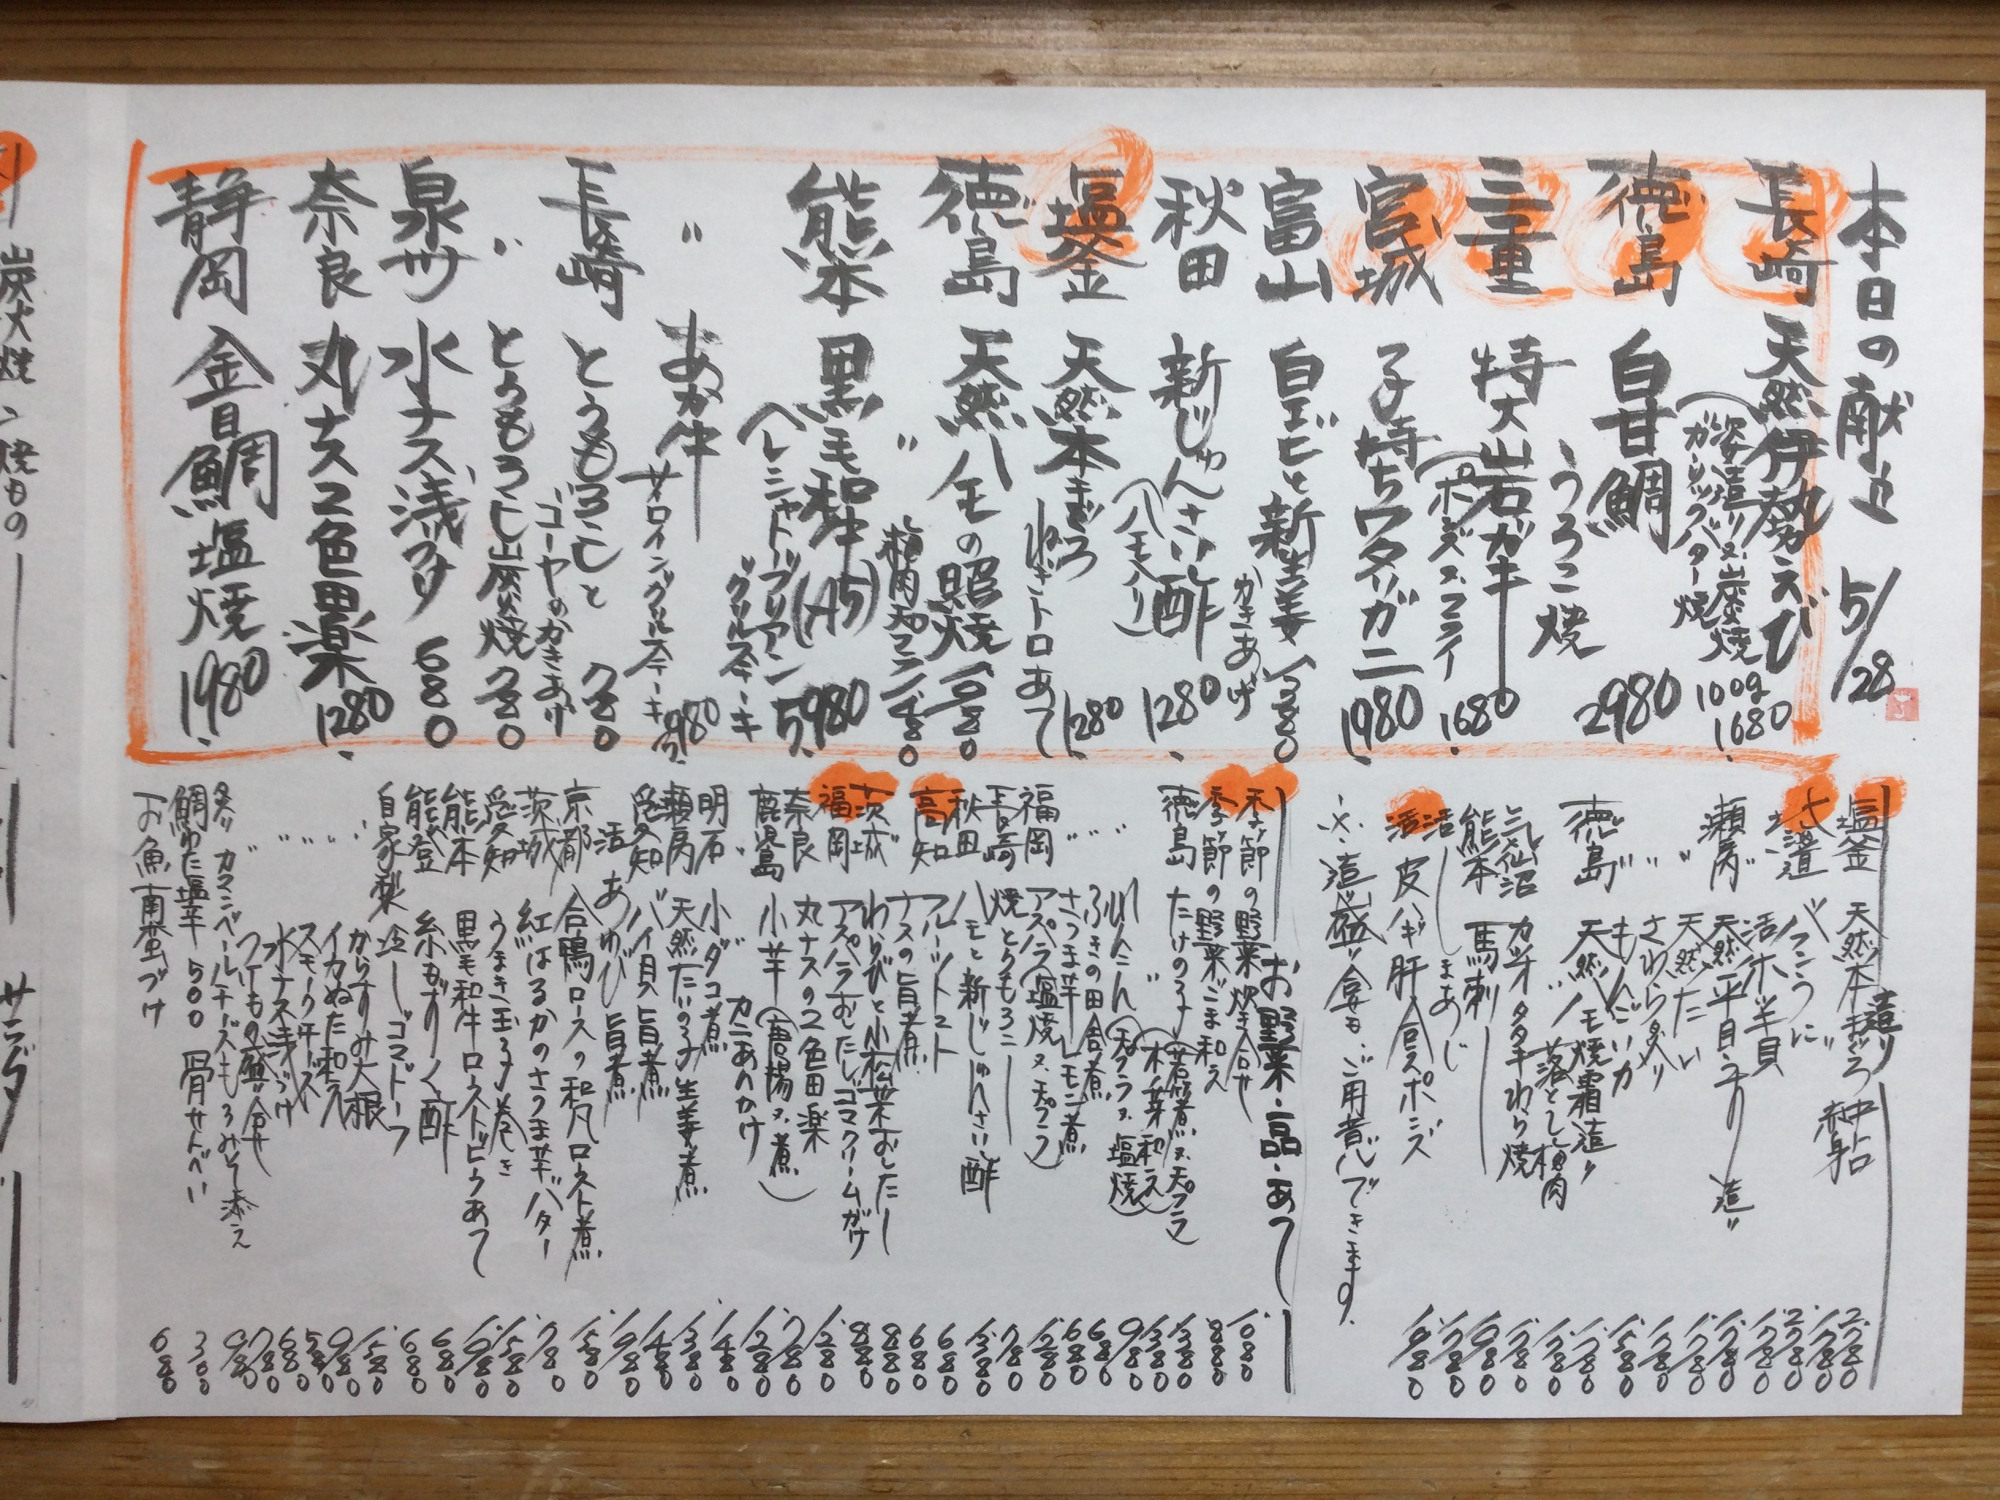 本日の献立 5/28
長崎 天然伊勢えび
(姿造り又炭焼 100g 1680
ガーリックバター焼
徳島 白甘鯛 2980
うろこ焼
三重 特大岩ガキ 1680
(ポンズ.フライ
宮城 子持ちワタリガニ 1980
富山 白エビと新生姜 1380
かきあげ
秋田 新じゅんさい酢 1280
(ハモ入り)
塩釜 天然本まぐろ 1280
ねぎトロあて
徳島 天然ハモの照焼 1680
〃 梅肉天プラ 1480
熊本 黒毛和牛(A5) 5,980
ヘレシャトーブリアン
グリルステーキ
〃 あか牛 3,980
サーロイングリルステーキ
長崎 とうもろこしと 780
ゴーヤのかきあげ
〃 とうもろこし炭焼 780
泉州 水ナス浅づけ 680
奈良 丸ナス2色田楽 1280
静岡 金目鯛塩焼 1980
造り
塩釜 天然本まぐろ 中トロ 2780
赤身 1780
バフンうに 2780
活ホッキ貝 1780
瀬戸内 天然平目うすり造り 1780
〃 天然たい 1780
〃 さわらタタキ 1680
〃 もんごいか 1580
徳島 天然ハモ焼霜造り 1780
落とし梅肉
気仙沼 カツオタタキわら焼 1780
熊本 馬刺し 1980
活 しまあじ 1780
活 皮ハギ肝合えポンズ 1980
※造り盛り合せもご用意できます。
お野菜・一品・あて
季節の野菜炊き合せ 1080
季節の野菜ごま和え 880
徳島 たけのこ(若竹煮又天プラ 1380
〃 (木ノ芽和え) 1380
れんこん(天プラ又塩焼) 980
〃 ふきの田舎煮 680
〃 さつま芋レモン煮 680
福岡 アスパラ(塩焼又天プラ) 1280
長崎 焼とうもろこし 780
秋田 ハモと新じゅんさい酢 1380
高知 フルーツトマト 680
ナスの旨煮 680
茨城 わらびと小松菜おしたし 880
福岡 アスパラおしたしゴマクリームがけ 880
奈良 丸ナスの2色田楽 1280
鹿児島 小芋(唐揚又煮) 780
〃 カニあんかけ 1280
明石 小ダコ煮 1480
瀬戸内 天然たいの子生姜煮 1380
愛知 バイ貝旨煮 1480
活 あわび旨煮 1980
京都 合鴨ロースの和風ロースト煮 1580
茨城 紅はるかのさつま芋バター 780
愛知 うまき玉子巻き 1580
熊本 黒毛和牛ローストビーフあて 1980
能登 糸もずく酢 680
自家製 冷しゴマドーフ 680
〃 からすみ大根 1580
〃 イカぬた和え 980
〃 スモークチーズ 580
〃 水ナス浅づけ 680
〃 つけもの盛り合せ 780
炙りカマンベールチーズもろみそ添え 980
鯛わた塩辛 500 骨せんべい 300
お魚南蛮づけ 680
炭火焼
焼もの
サラダ